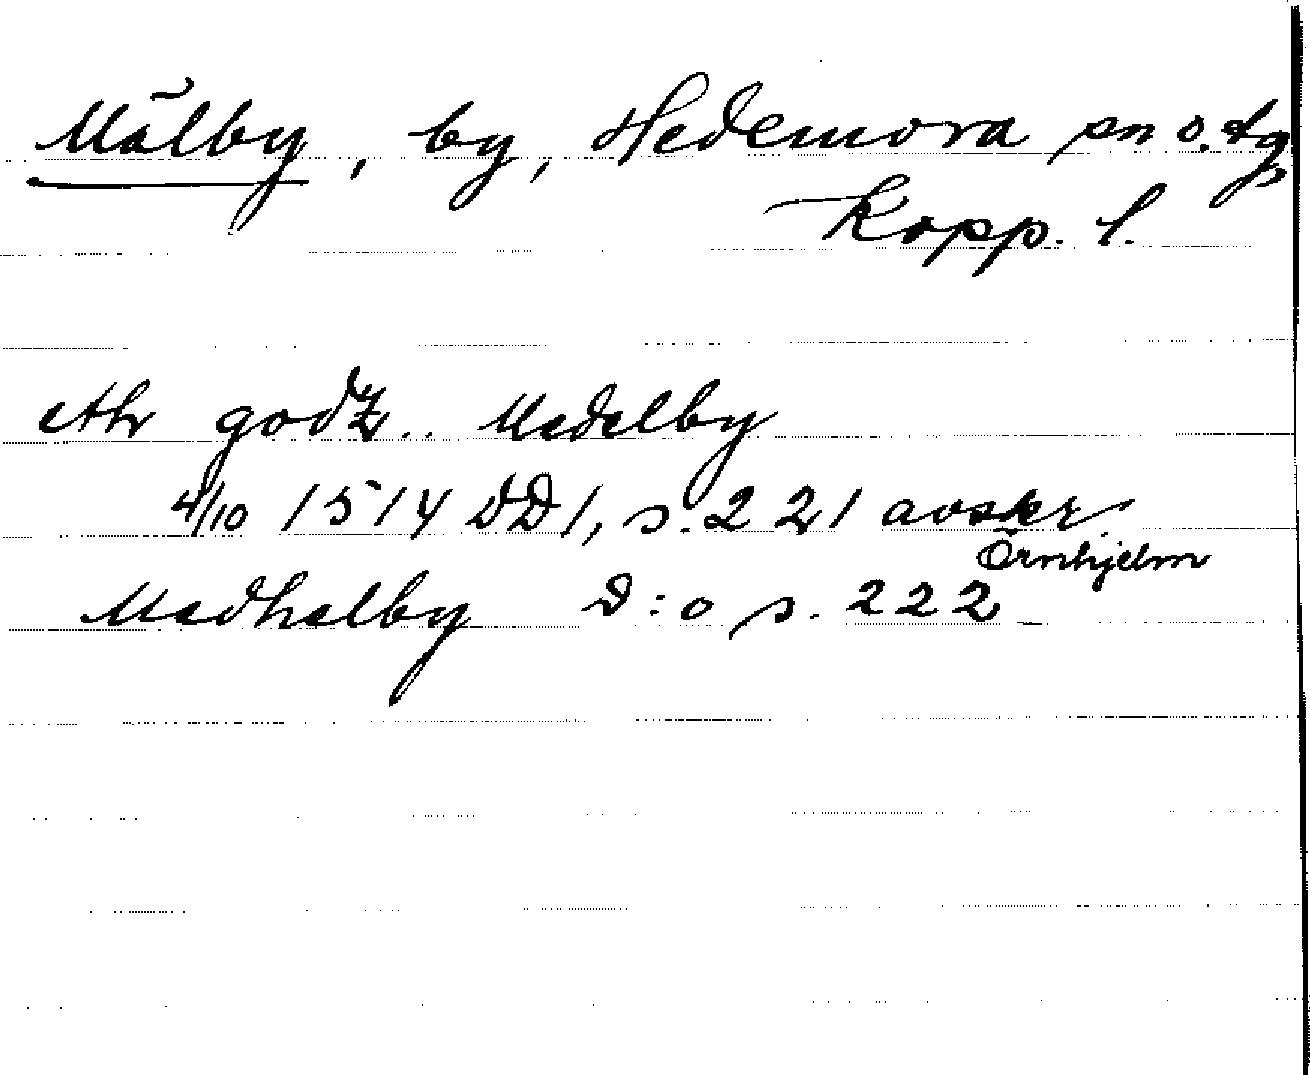 Mälby, by, Hedemora sn o. tg,
Kopp. l.
ethr godz.. Medelby
4/10 1514 DD1, s. 221 avskr
Örnhjelm
Medhelby D:o s. 222